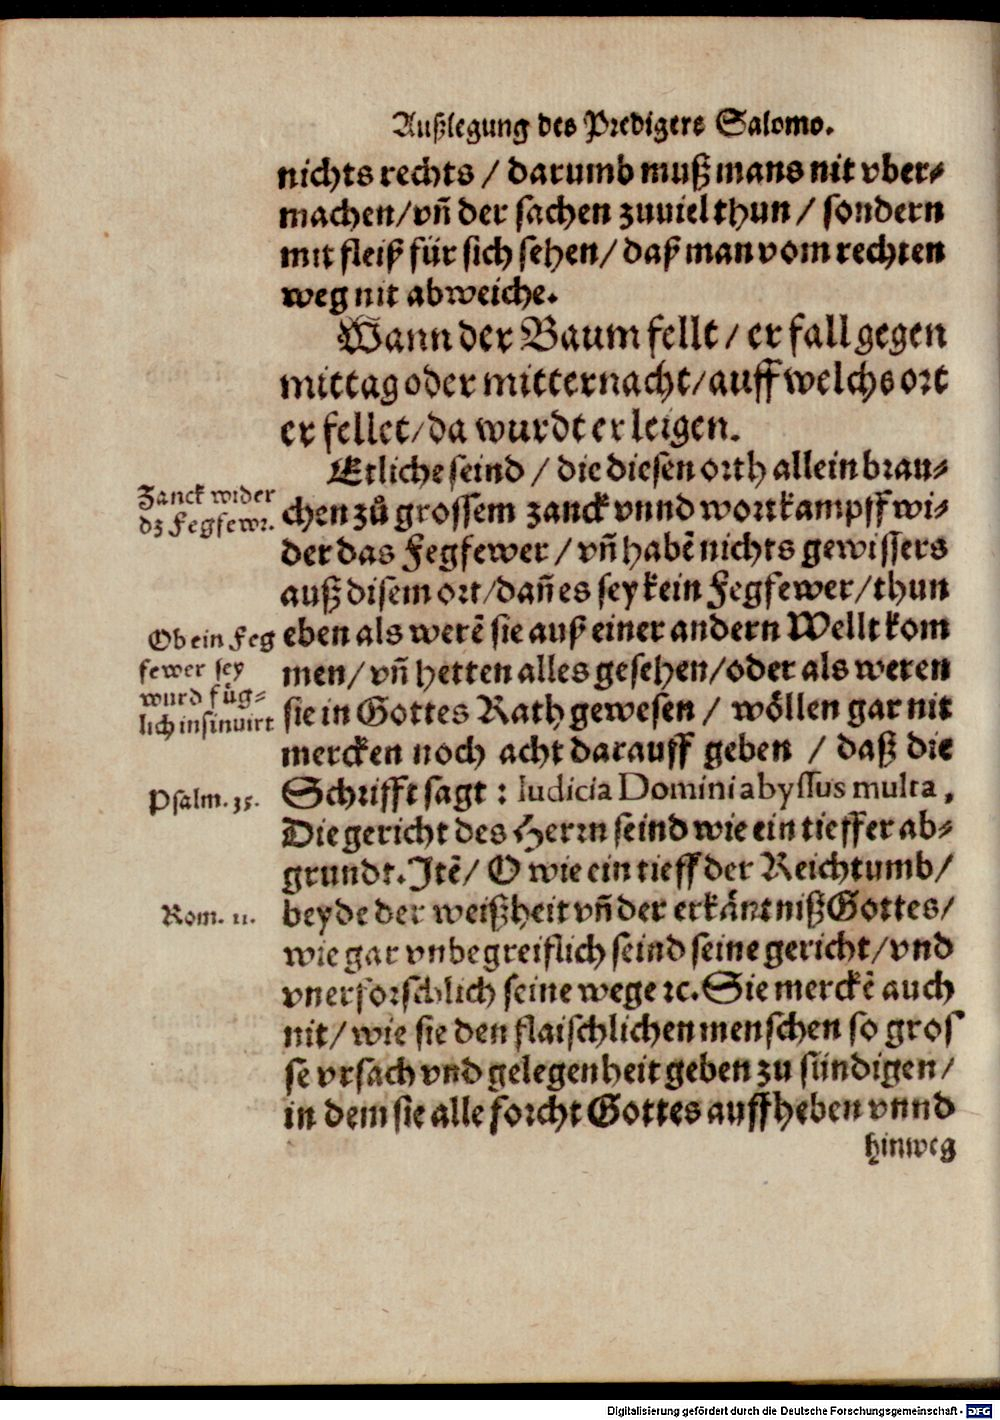 Außlegung des Predigers Salomo.
nichts rechts / darumb muß mans nit vber-
machen/vñ der sachen zuuiel thun / sondern
mit fleiß für sich sehen/ daß man vom rechten
weg nit abweiche.
Wann der Baum fellt / er fall gegen
mittag oder mitternacht/auff welchs ort
er fellet/da wurdt er leigen.
Etliche seind / die diesen orth allein brau-
Zanck wider
dz Fegfewr.
chen zů grossem zanck vnnd wortkampff wi-
der das Fegfewer / vñ habẽ nichts gewissers
auß disem ort/dañ es sey kein Fegfewer/thun
Ob ein Feg
fewer sey
wurd füg-
lich insinuirt
eben als werẽ sie auß einer andern Wellt kom
men/ vñ hetten alles gesehen/oder als weren
sie in Gottes Rath gewesen / wöllen gar nit
mercken noch acht darauff geben / daß die
Psalm. 35.
Schrifft sagt : Iudicia Domini abyssus multa,
Die gericht des Herrn seind wie ein tieffer ab-
grundt. Itẽ/ O wie ein tieff der Reichtumb/
Rom. 11.
beyde der weißheit vñ der erkäntniß Gottes/
wie gar vnbegreiflich seind seine gericht/vnd
vnerforschlich seine wege ꝛc. Sie merckẽ auch
nit/ wie sie den flaischlichen menschen so gros
se vrsach vnd gelegenheit geben zu sündigen/
in dem sie alle forcht Gottes auffheben vnnd
hinweg
Digitalisierung gefördert durch die Deutsche Forschungsgemeinschaft - DFG